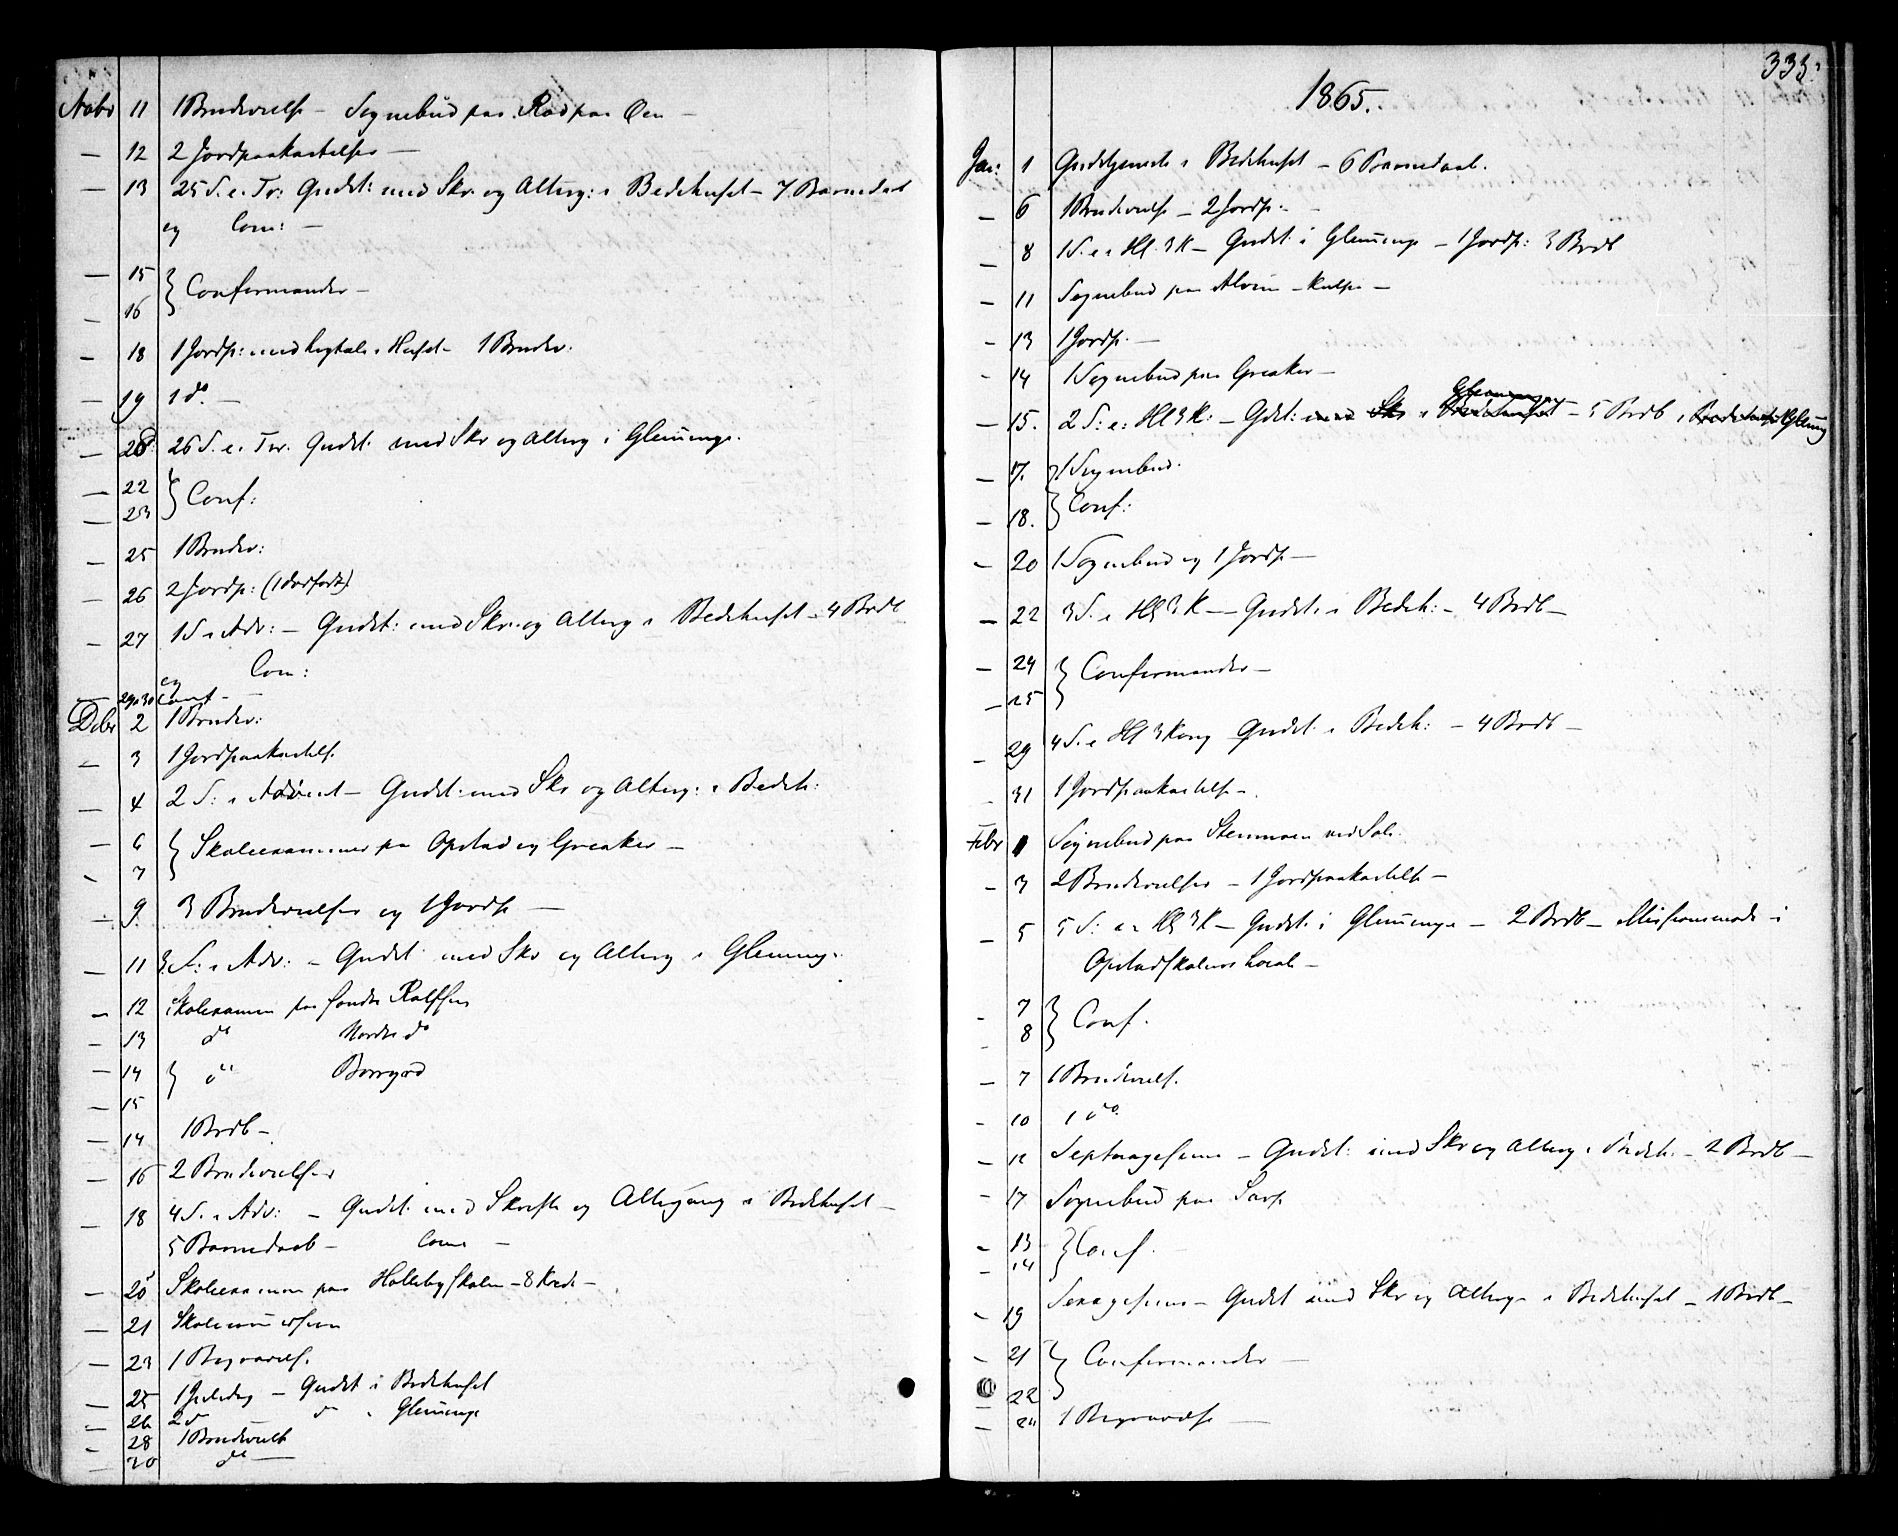 Novbr 11 1 Brudevielse – Sognebud paa Rød paa Øen –
— 12 2 Jordpaakastelser —
— 13 25 S. e. Tr: Gudst: med Skr. og Alterg: i Bedehuset – 7 Barnedaab
og Com: —
— 15 } Confirmander –
— 16
— 18 1 Jordp: med Ligtale i Huset – 1 Brudev:
— 19 1 do. —
— 20 26 S. e. Tr. Gudst: med Skr og Alterg i Glemminge.
— 22 } Conf:
— 23
— 25 1 Brudev:
— 26 2 Jordp: (1 dødfødt)
— 27 1 S. i Adv: – Gudst: med Skr. og Alterg i Bedehuset – 4 Brdb
og Com:
— 29. 30 Conf –
Dcbr 2 1 Brudev:
— 3 1 Jordpaakastelse.
— 4 2 S: i Advent – Gudst: med Skr og Alterg: i Bedeh:
— 6 } Skoleexaminer pa Opstad og Greaker –
— 7
— 9. 3 Brudevielser og 1 Jordp —
— 11 3 S: i Adv: – Gudst: med Skr og Alterg i Glemming.
— 12 Skolexamen paa Søndre Rolfsøen
— 13 do Nordre do
— 14 } do Borregaard
— 15
— 14 1 Brdb –
— 16 2 Brudevielser
— 18 4 S. i Adv: – Gudst: med Skrifte og Altergang i Bedehuset –
5 Barnedaab – Com —
— 20 Skolexamen paa Hallebyskolen – 8 Kredse –
— 21 Skolecommission
— 23 1 Begravels.
— 25 1 Juledag – Gudst i Bedehuset
— 26 2 d do i Glemminge
— 28 1 Brudevielse
— 30 do —
333.
1865.
Jan: 1 Gudstjeneste i Bedehuset – 6 Barnedaab.
— 6 1 Brudevielse – 2 Jordp. –
— 8 1 S. e. Hl. 3 K – Gudst: i Glemminge – 1 Jordp: 3 Brdb
— 11 Sognebud paa Alvim –
— 13 1 Jordp. —
— 14 1 Sognebud paa Greaker –
— 15. 2 S: e: Hl 3 K: – Gdst: med Skr i Bedehuset Glemminge – 5 Brdb i Bedehuset Glemming
— 17. } 1 Sognebud.
— 18. } Conf:
— 20 1 Sognebud og 1 Jordp —
— 22 3 S. e. Hl 3 K — Gudst. i Bedeh: – 4 Brdb –
— 24 } Confirmander –
— 25
— 29 4 S. e Hl 3 Kong Gudst: i Bedeh: – 4 Brdb –
— 31 1 Jordpaakastelse –.
Febr 1 Sognebud paa Stenmoen ved Sale
— 3 2 Brudevielser – 1 Jordpaakastelse –
— 5 5 S: e. Hl 3 K – Gudst. i Glemminge – 2 Brdb – Missionsmøde i
Opstadskolens Locale –
— 7 } Conf.
— 8
— 7 1 Brudevielse.
— 10 1 do.
— 12 Septuagesima – Gudst: med Skr og Alterg i Bedeh. – 2 Brdb –
— 17 Sognebud paa Sarp
— 13 } Conf.
— 14
— 19 Sexagesima – Gudst med Skr og Alterg i Bedehuset – 1 Brdb –
— 21 } Confirmander —
— 22
— 24 1 Begravelse —